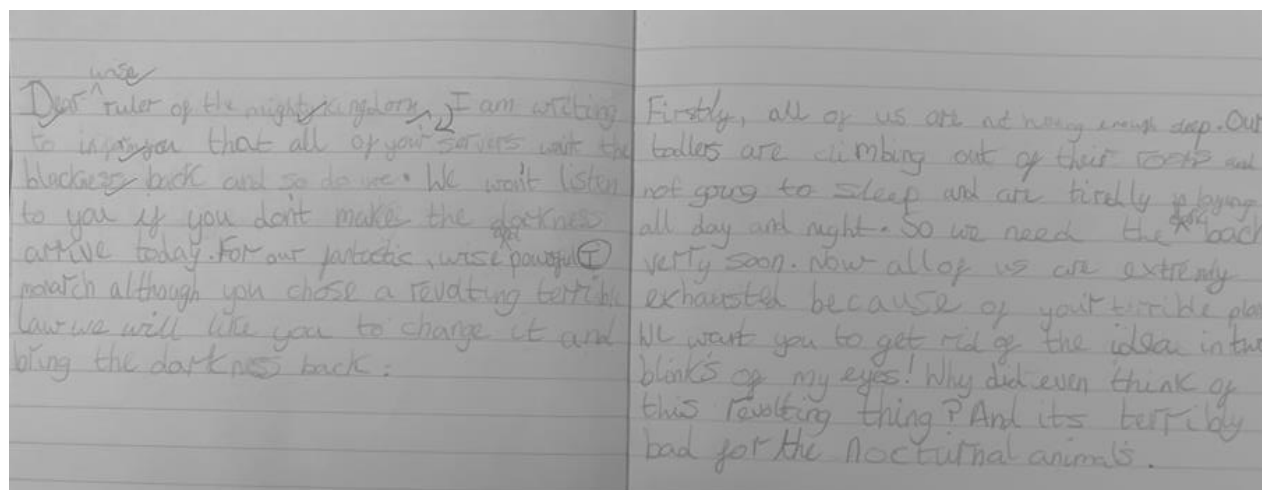 wise
Dear ^ ruler of the mighty kingdom, I am writing
to inform you that all of your servers want the
blackness back and so do we. We won't listen
to you if you don't make the darkness
arrive today. For our fantastic, wise powerful
monarch although you chose a revolting terrible
law we will like you to change it and
bring the darkness back.
Firstly, all of us are not having enough sleep. Our
are climbing out of their and
not going to sleep and are playing
all day and night. So we need the back
verty soon. Now all of us are extremly
exhausted because of your terrible plan
We want you to get rid of the idea in two
blinks of my eyes! Why did even think of
this revolting thing? And its terribly
bad for the nocturnal animals.